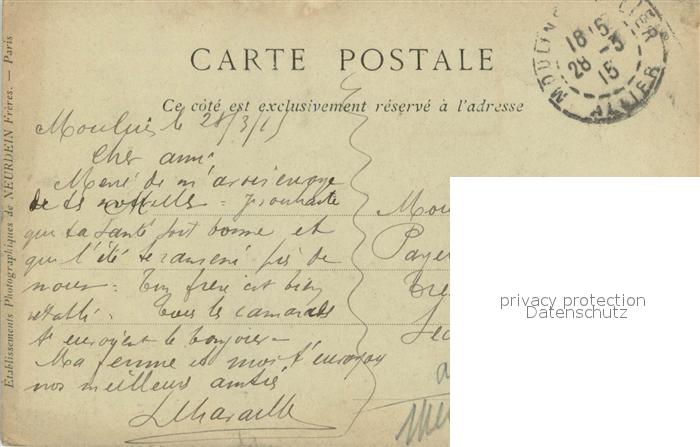 CARTE POSTALE
Ce côté est exclusivement réservé à l'adresse
Etablissements Photographiques de NEURDEIN Frères. — Paris
MOULINS
ALLIER
18 15
28 -3
15
Moulins le 28/3/15
Cher ami
Merci de m'avoir envoyé
de tes nouvelles = Je souhaite
que ta santé soit bonne et
que l'été te ramène près de
nous = Ton frère est bien
rétabli = Tous les camarades
t'envoient le bonjour =
Ma femme et moi t'envoyons
nos meilleurs amitiés
Mou
Paye
Tré
privacy protection
Datenschutz